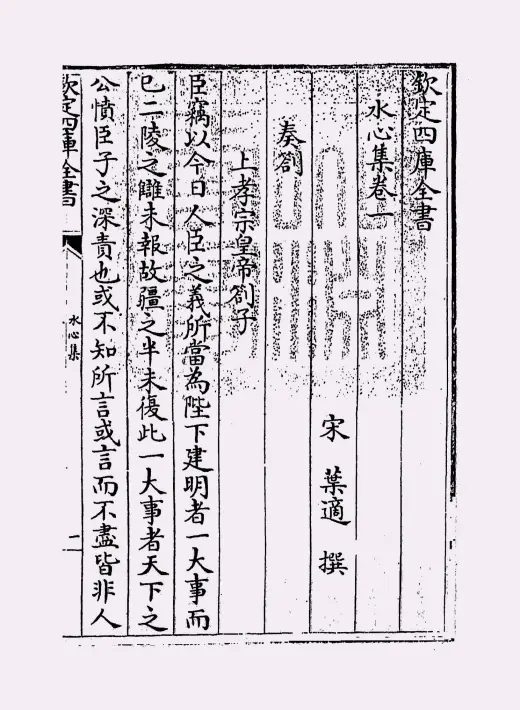 欽定四庫全書
水心集卷一
宋 葉適 撰
奏劄
上孝宗皇帝劄子
臣竊以今日人臣之義所當為陛下建明者一大事而
已二陵之讎未報故疆之半未復此一大事者天下之
公憤臣子之深責也或不知所言或言而不盡皆非人
欽定四庫全書
水心集